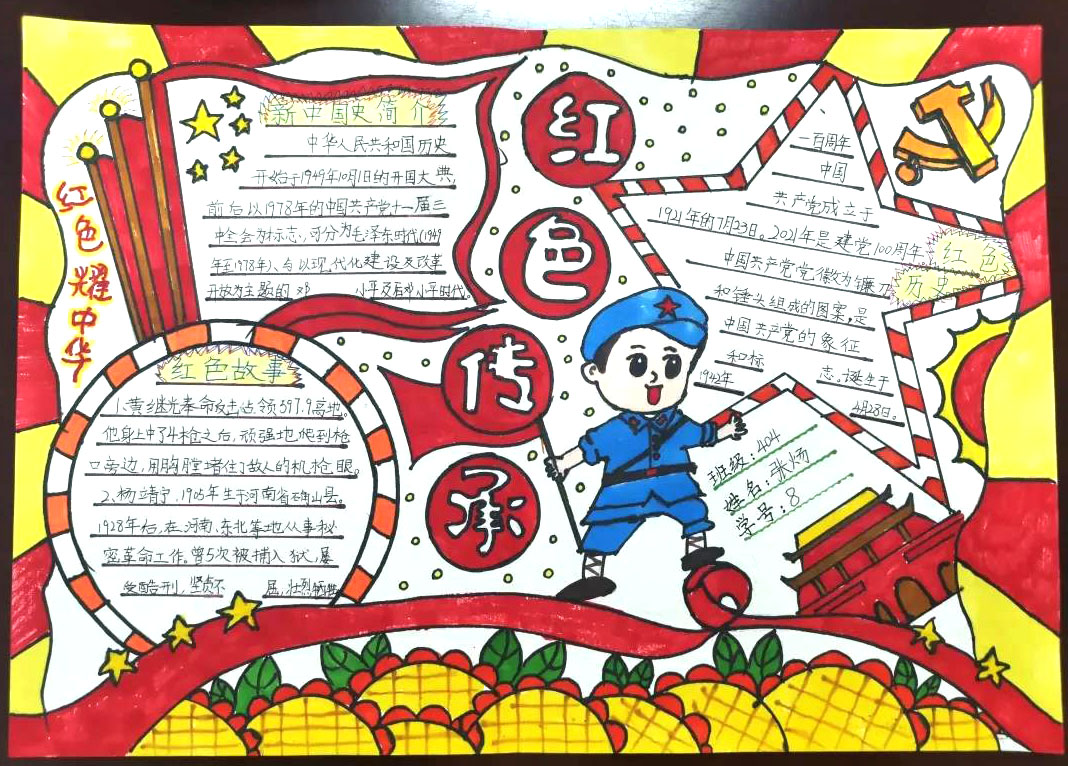 红色传承
红色耀中华
新中国史简介
中华人民共和国历史
开始于1949年10月1日的开国大典,
前后以1978年的中国共产党十一届三
中全会为标志,可分为毛泽东时代(1949
年至1978年)、与以现代化建设及改革
开放为主题的邓 小平及后邓小平时代。
红色故事
1.黄继光奉命攻击占领597.9高地。
他身上中了4枪之后,顽强地爬到枪
口旁边,用胸膛堵住了敌人的机枪眼。
2.杨靖宇,1905年生于河南省确山县。
1928年后,在河南、东北等地从事秘
密革命工作。曾5次被捕入狱,屡
受酷刑,坚贞不 屈,壮烈牺牲
红色
历史
一百周年
中国
共产党成立于
1921年的7月23日。2021年是建党100周年
中国共产党党徽为镰刀
和锤头组成的图案,是
中国共产党的象征
和标 志。诞生于
1942年 4月28日。
班级:404
姓名:张炀
学号:8